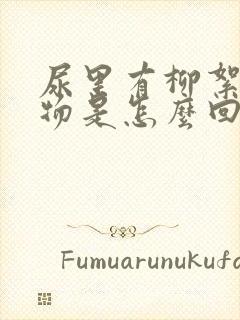 尿里有柳絮
物是怎麼回
Fumuarunukufc